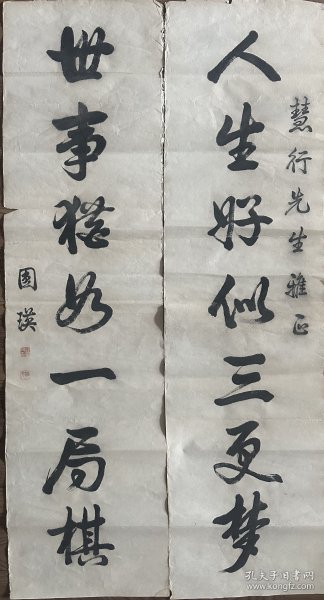 慧行先生雅正
人生好似三更梦
世事犹如一局棋
圆瑛
孔夫子旧书网
kongfz.com